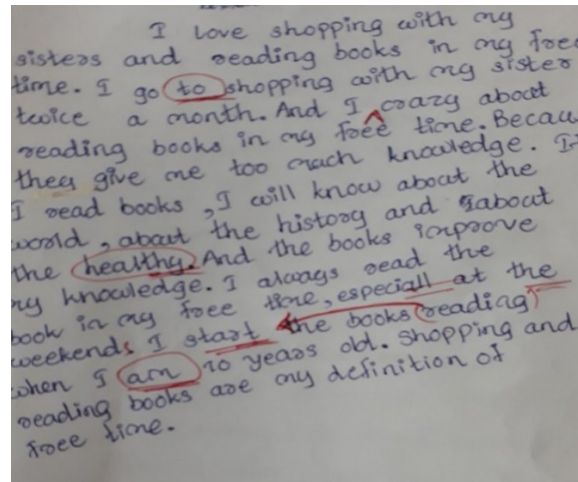 I love shopping with my
sisters and reading books in my free
time. I go to shopping with my sister
twice a month. And I crazy about
reading books in my free time. Becau
they give me too much knowledge. If
I read books, I will know about the
world, about the history and about
the healthy. And the books improve
my knowledge. I always read the
book in my free time, especiall at the
weekends I start the books reading
when I am 10 years old. Shopping and
reading books are my definition of
free time.